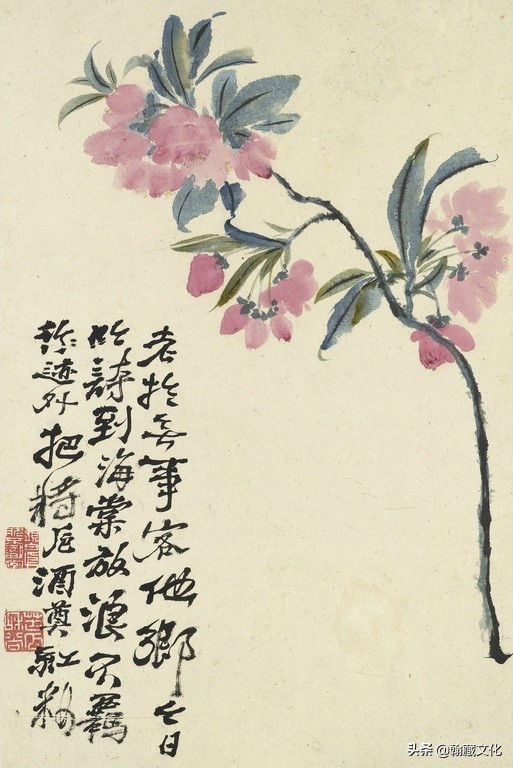 老於無事客他鄉今日
吟詩到海棠放浪不羈
踪迹外把將卮酒奠紅粧
头条 @翰藏文化